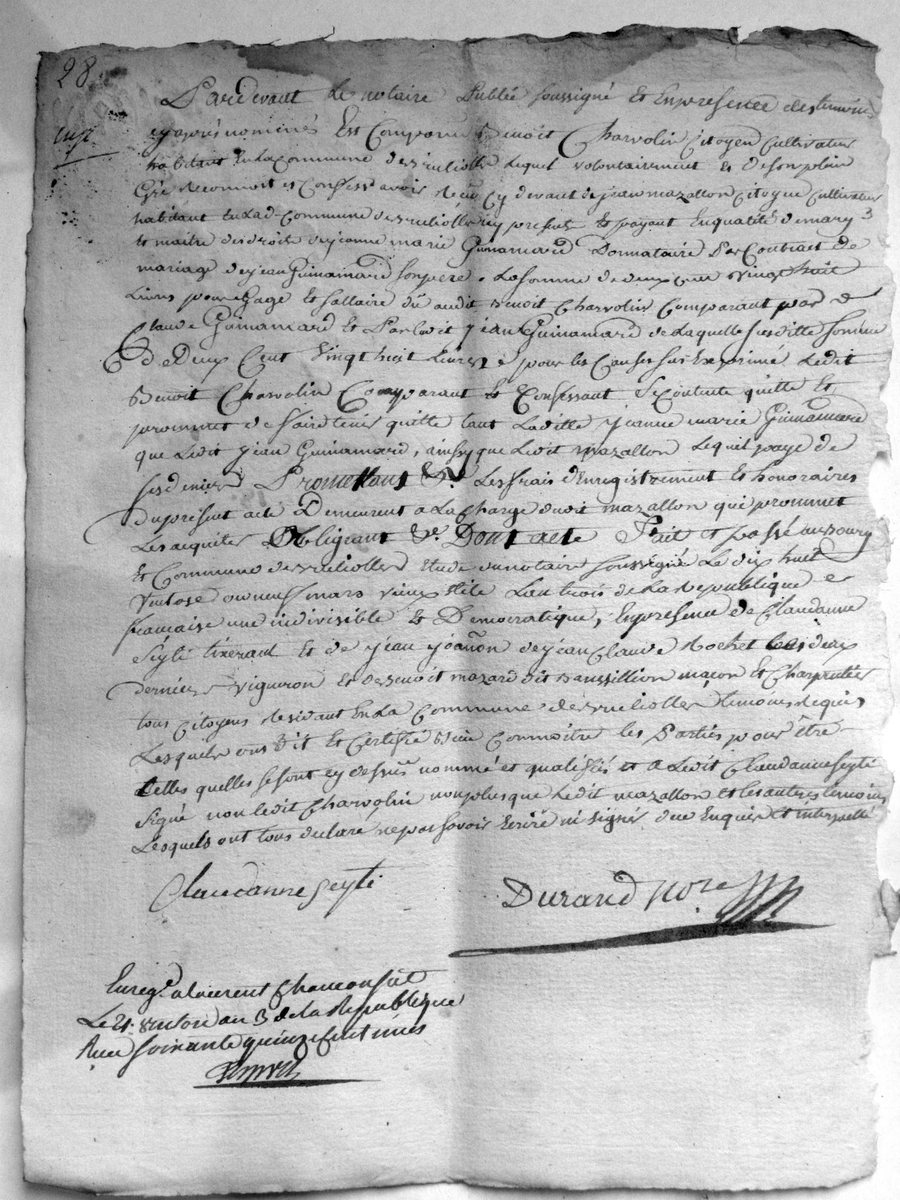 28
Pardevant Le notaire Public soussigné Et En presence des temoins
cy apres nommés Est Comparu Benoit Charvolin Citoyen Cultivateur
habitant En La Commune de Lequel volontairement Et de son plein
Gré Reconnoit et Confesse avoir Reçu Cy devant de jean mazallon Citoyen Cultivateur
habitant En Lad. Commune de icy present Et payant En qualité de mary
Et maitre des droits de jeanne marie Guinamard Donnataire Par Contrait de
mariage de jean Guinamard son pere, La somme de deux Cent vingt huit
Livres pour Gage Et sallaire dû audit Benoit Charvolin Comparant par
Claude Guinamard Et Par Ledit jean Guinamard de Laquelle susditte somme
de Deux Cent vingt huit Livres Et pour les Causes sus Exprimé Ledit
Benoit Charvolin Comparant Et Confessant se Contente quitte Et
prommet de faire tenir quitte tant Laditte jeanne marie Guinamard
que Ledit jean Guinamard, ainsy que Ledit mazallon Lequel paye de
ses deniers Promettant &c. Les frais d'Enregistrement Et honoraires
du present acte Demeurent a La Charge dudit mazallon qui prommet
Les acquiter Obligeant &c. Dont acte Fait et passé au Bourg
Et Commune de Etude du notaire soussigné Le dix huit
Ventose ou neuf mars vieux stile L'an trois de La Republique
francaise une indivisible Et Democratique, En presence de Claudanne
Seyti tixerant Et de jean joanon de jean Claude Rochet Les deux
derniers vigneron Et de Benoit mazard dit maçon Et Charpentier
tous Citoyens Residant En La Commune de temoins Requis
Lesquels ont dit et Certifié Bien Connoitre les Parties pour être
telles quelles se sont cy dessus nommé et qualifiés et a Ledit Claudanne Seyti
signé non Ledit Charvolin non plus que Ledit mazallon et les autres temoins
Lesquels ont tous declaré ne pas savoir Ecrire ni signer de ce Enquis Et interpellé
Claudanne Seyti
Durand Nore
Enregé a Laurent Chamousset
Le 21 ventose an 3 de la Republique
Reçu soixante quinze centimes